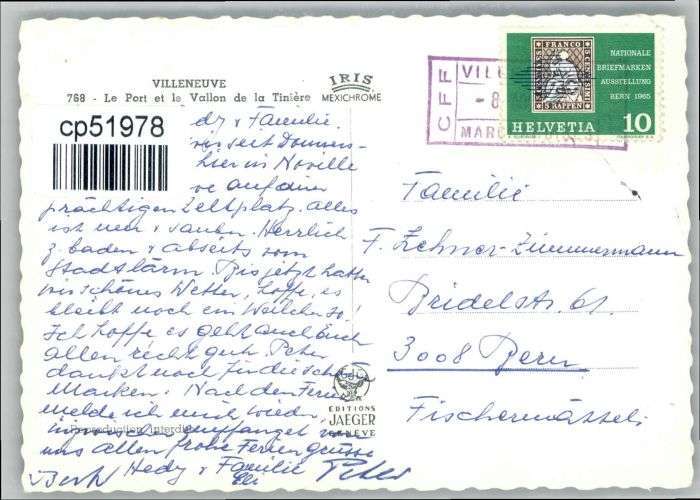 VILLENEUVE
768 - Le Port et le Vallon de la Tinière
IRIS
MEXICHROME
cp51978
& Familie.
wir seit Donners-
hier in Noville
auf einer
prächtigen Zeltplatz. Alles
ist neu & sauber. Herrlich
z. baden & abseits vom
Stadtlärm. Bis jetzt hatten
wir schönes Wetter, hoffe, es
bleibt noch ein Weilchen so!
Ich hoffe es geht auch Euch
allen recht gut. Peter
dankt noch für die schö
Marken. Nach den Ferien
melde ich mich wieder,
inzwischen empfanget von
uns allen frohe Feriengrüsse
Hedy & Familie Peter
Reproduction interdite
EDITIONS
JAEGER
GENÈVE
CFF
VILL
-8.
MARC
FRANCO
5 RAPPEN
NATIONALE
BRIEFMARKEN
AUSSTELLUNG
BERN 1965
HELVETIA 10
Familie
F. Zehner-Zimmermann
Bridelstr. 61.
3008 Bern
Fischermätteli